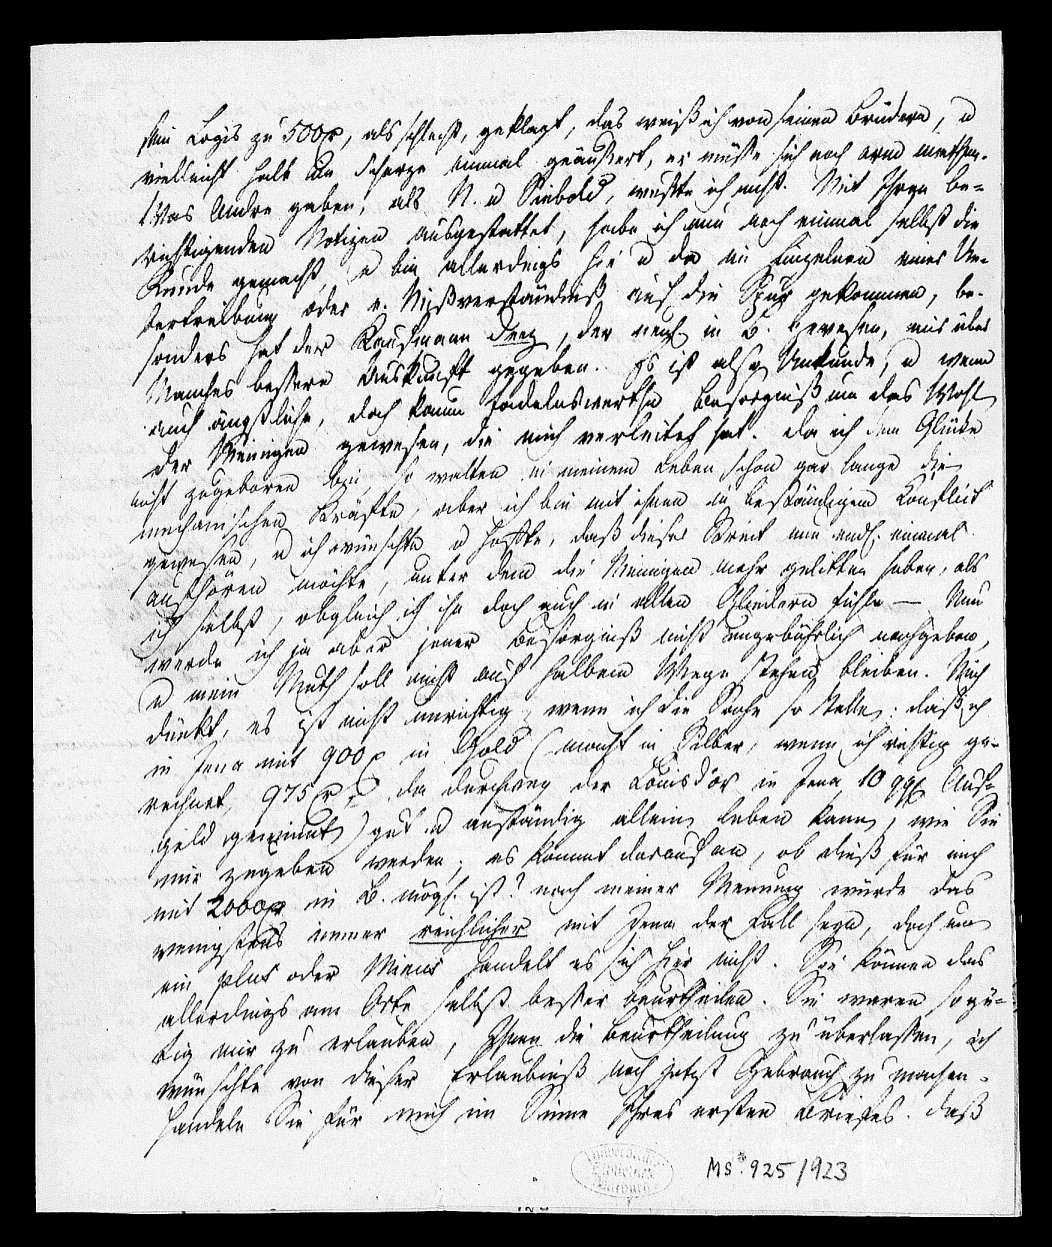 sein Logis zu 500 r, als schlecht, geklagt, das weiß ich von seinen Brüdern, u
vielleicht halb im Scherze einmal geäußert, er müsse sich noch arm
Was Andre geben, als N. u Siebold, wußte ich nicht. Mit Ihren be-
richtigenden Notizen ausgestattet, habe ich nun noch einmal selbst die
Runde gemacht u bin allerdings hie u da im Einzelnen einer Ue-
bertreibung oder e. Mißverständniß auf die Spur gekommen, be-
sonders hat der Kaufmann, der in B. gewesen, mir über
Manches bessere Auskunft gegeben. Es ist also Unkunde, u wenn
auch ängstliche, doch kaum tadelnswerthe Besorgniß um das Wohl
der Meinigen gewesen, die mich verleitet hat. Da ich dem Glücke
nicht zugeboren bin, so walten in meinem Leben schon gar lange die
mechanischen Kräfte, aber ich bin mit ihnen in beständigem Conflict
gewesen, u ich wünschte u hoffte, daß dieser Streit nun endl. einmal
aufhören möchte, unter dem die Meinigen mehr gelitten haben, als
ich selbst, obgleich ich ihn doch auch in allen Gliedern fühle — Nun
werde ich ja aber jener Besorgniß nicht ungebührlich nachgeben,
u mein Muth soll nicht auf halbem Wege stehen bleiben. Mich
dünkt, es ist nicht unrichtig, wenn ich die Sache so stelle: daß ich
in Jena mit 900 r in Gold (macht in Silber, wenn ich richtig ge-
rechnet, 975 r, da durchweg der Louisd'or in Jena 10 ggl Auf-
geld gewinnt) gut u anständig allein leben kann, wie Sie
mir zugeben werden; es kommt darauf an, ob dieß für mich
mit 2000 r in B. mögl. ist? nach meiner Meinung würde das
wenigstens immer reichlicher mit Jena der Fall seyn, doch um
ein plus oder Minus handelt es sich hier nicht. Sie können das
allerdings am Orte selbst besser beurtheilen. Sie waren so gü-
tig mir zu erlauben, Ihnen die Beurtheilung zu überlassen, ich
wünschte von dieser Erlaubniß noch jetzt Gebrauch zu machen.
Handeln Sie für mich im Sinne Ihres ersten Briefes. Daß
Ms. 925/923